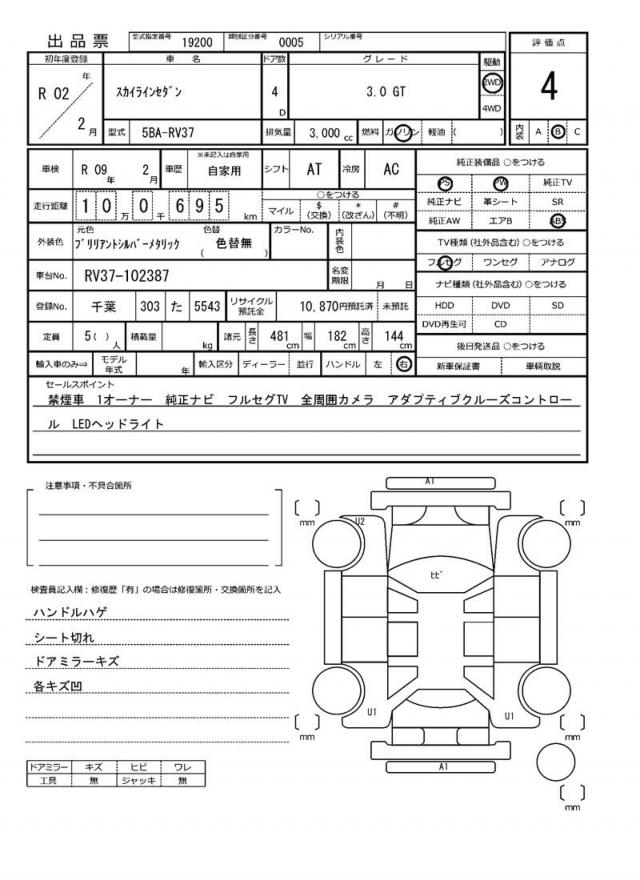 出品票 型式指定番号 19200 類別区分番号 0005 シリアル番号
評価点
4
初年度登録 車名 ドア数 グレード 駆動
R 02 年 2 月 スカイラインセダン 4 D 3.0 GT 2WD 4WD
型式 5BA-RV37 排気量 3,000 cc 燃料 ガソリン 軽油 ( )
内装 A B C
車検 R 09 年 2 月 車歴 ※未記入は自家用 自家用 シフト AT 冷房 AC
走行距離 1 0 万 0 千 6 9 5 km
○をつける
マイル $ (交換) * (改ざん) # (不明)
外装色 元色 ブリリアントシルバーメタリック 色替 ( 色替無 ) カラーNo. 内装色
車台No. RV37-102387 名変期限 月 日
登録No. 千葉 303 た 5543 リサイクル預託金 10,870円預託済 未預託
定員 5( ) 人 積載量 kg 諸元 長さ 481 cm 幅 182 cm 高さ 144 cm
輸入車のみ⇒ モデル年式 年 輸入区分 ディーラー 並行 ハンドル 左 右
純正装備品 ○をつける
PS PW 純正TV
純正ナビ 革シート SR
純正AW エアB ABS
TV種類(社外品含む) ○をつける
フルセグ ワンセグ アナログ
ナビ種類(社外品含む) ○をつける
HDD DVD SD
DVD再生可 CD
後日発送品 ○をつける
新車保証書 車輌取説
セールスポイント
禁煙車 1オーナー 純正ナビ フルセグTV 全周囲カメラ アダプティブクルーズコントロー
ル LEDヘッドライト
注意事項・不具合箇所
検査員記入欄：修復歴「有」の場合は修復箇所・交換箇所を記入
ハンドルハゲ
シート切れ
ドアミラーキズ
各キズ凹
ドアミラー キズ ヒビ ワレ
工具 無 ジャッキ 無
A1
mm
mm
U2
ヒビ
U1
U1
mm
mm
A1
mm